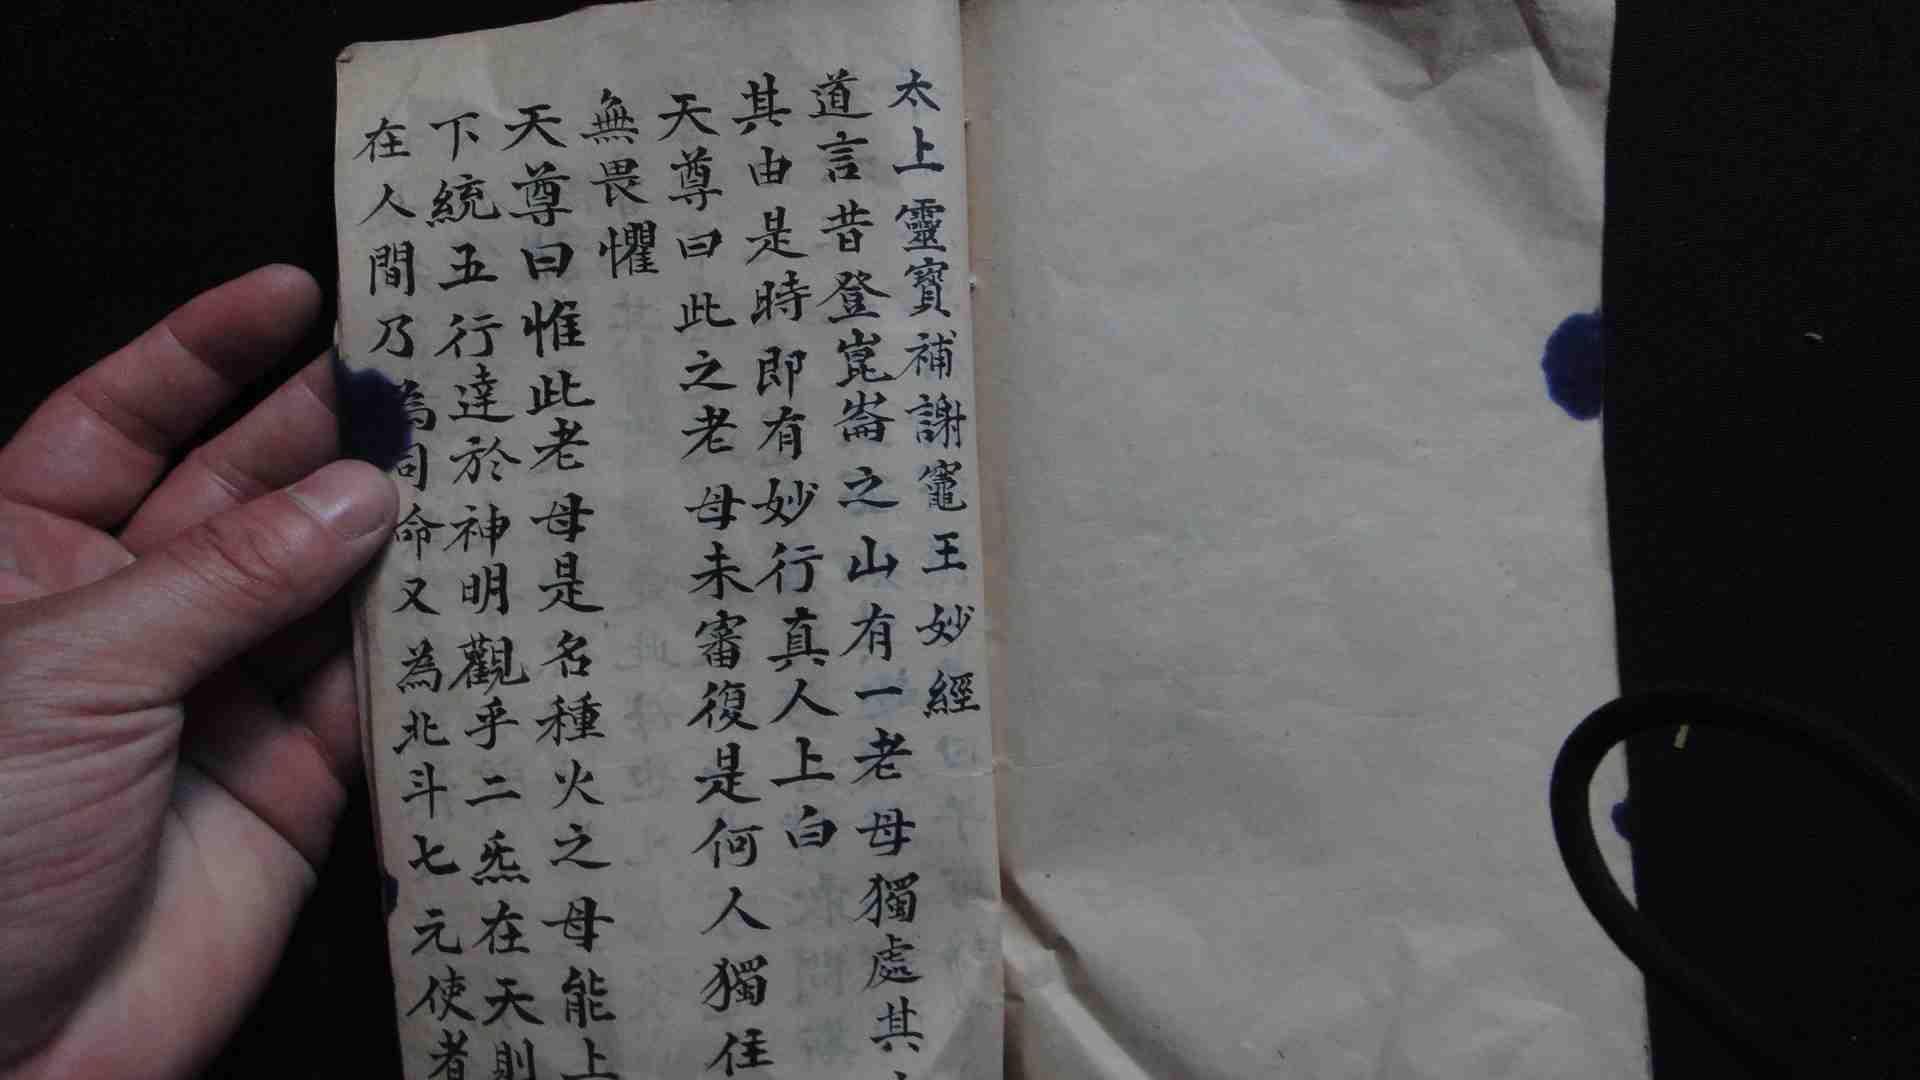 太上靈寳補謝竈王妙經
道言昔登崑崙之山有一老母獨處其
其由是時即有妙行真人上白
天尊曰此之老母未審復是何人獨住
無畏懼
天尊曰惟此老母是名種火之母能上
下統五行達於神明觀乎二炁在天則
在人間乃為司命又為北斗七元使者